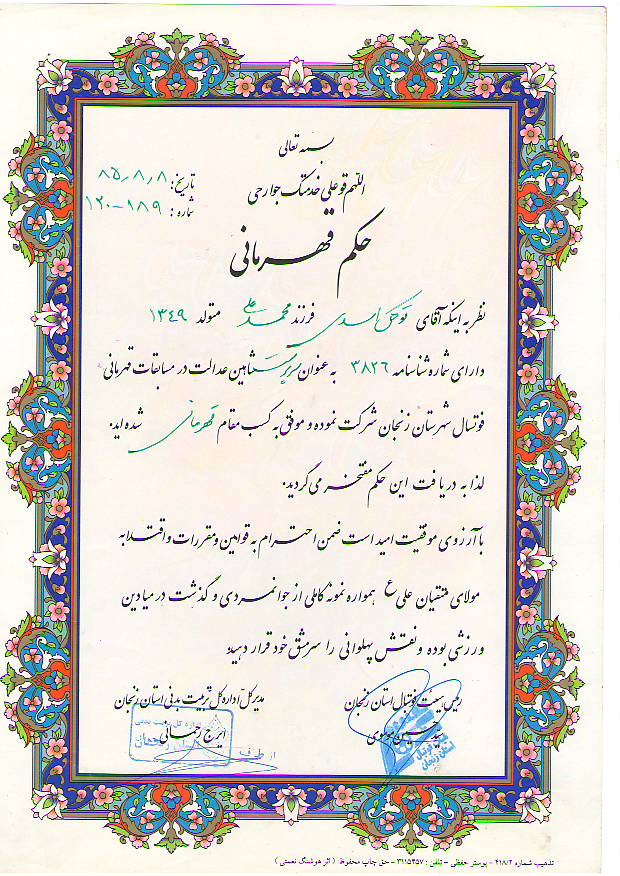 بسمه تعالی
اللهم قو علی خدمتک جوارحی
تاریخ: ۸۵/۸/۸
شماره: ۱۲۰-۱۸۹
حکم قهرمانی
نظر به اینکه آقای اسدی فرزند محمد علی متولد ۱۳۴۹
دارای شماره شناسنامه ۳۸۲۶ به عنوان سرپرست شاهین عدالت در مسابقات قهرمانی
فوتسال شهرستان زنجان شرکت نموده و موفق به کسب مقام قهرمانی شده اید.
لذا به دریافت این حکم مفتخر می گردید.
با آرزوی موفقیت امید است ضمن احترام به قوانین و مقررات و اقتدا به
مولای متقیان علی ع همواره نمونه کاملی از جوانمردی و گذشت در میادین
ورزشی بوده و نقش پهلوانی را سرمشق خود قرار دهید
رئیس هیئت فوتسال استان زنجان
سید موسوی
استان زنجان
مدیرکل اداره کل تربیت بدنی استان زنجان
ایرج رحمانی
اداره کل تربیت بدنی
استان زنجان
از طرف
تذهیب شماره ۴۱۸/۲ - پوستر حفظی - تلفن: ۳۱۱۵۴۵۷ - حق چاپ محفوظ (اثر هوشنگ نعمتی)